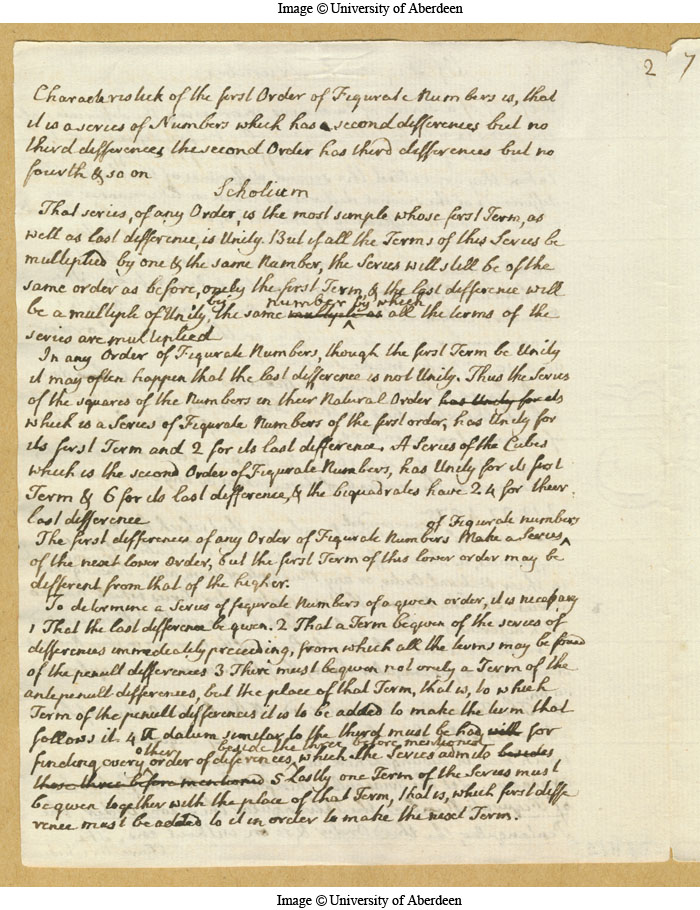 Image © University of Aberdeen
2 7
Characteristick of the first Order of Figurate Numbers is, that
it is a series of Numbers which has second differences but no
third differences, the second Order has third differences but no
fourth & so on
Scholium
That series, of any Order, is the most simple whose first Term, as
well as last difference, is Unity. But if all the Terms of this Series be
multiplied by one & the same Number, the Series will still be of the
same order as before, onely the first Term & the last difference will
be a multiple of Unity, by the same multiple as number by which all the terms of the
series are multiplied
In any Order of Figurate Numbers, though the first Term be Unity
it may often happen that the last difference is not Unity. Thus the Series
of the squares of the Numbers in their Natural Order has Unity for its
which is a Series of Figurate Numbers of the first order, has Unity for
its first Term and 2 for its last difference. A Series of the Cubes
which is the second Order of Figurate Numbers, has Unity for its first
Term & 6 for its last difference, & the biquadrates have 24 for their
last difference
The first differences of any Order of Figurate Numbers Make a Series of Figurate numbers
of the next lower Order, but the first Term of this lower order may be
different from that of the higher.
To determine a Series of figurate Numbers of a given order, it is necessary
1 That the last difference be given. 2 That a Term be given of the series of
differences immediately preceeding, from which all the terms may be found
of the penult differences 3 There must be given not onely a Term of the
antepenult differences, but the place of that Term, that is, to which
Term of the penult differences it is to be added to make the term that
follows it. 4 A datum similar to the third must be had with for
finding every other order of differences, which the Series admits besides beside the three before mentioned
those three before mentioned 5 Lastly one Term of the Series must
be given together with the place of that Term, that is, which first diffe
rence must be added to it in order to make the next Term.
Image © University of Aberdeen